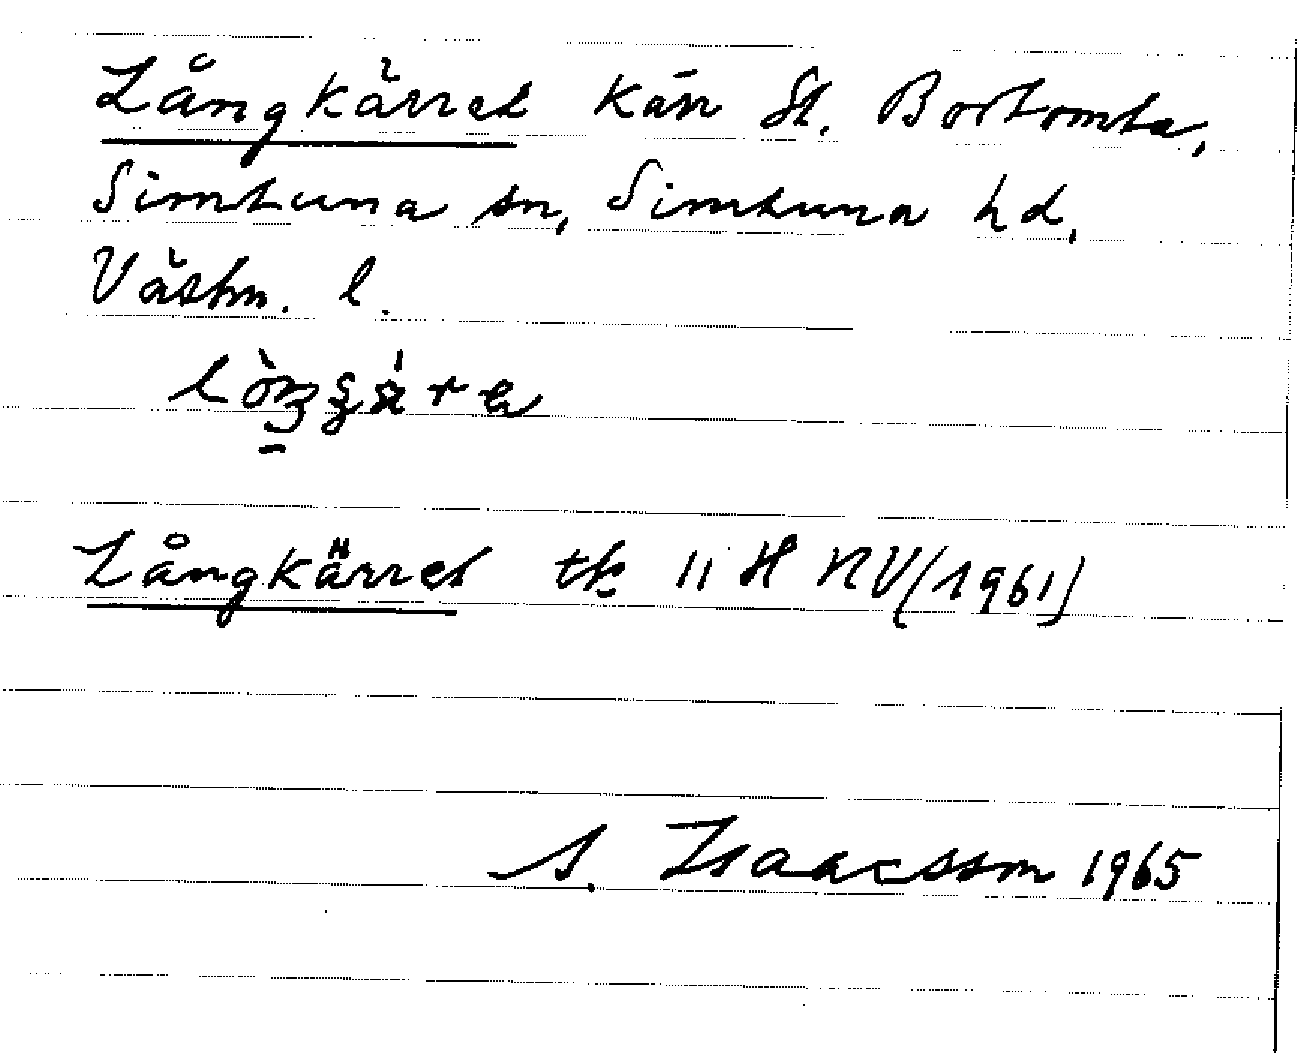 Långkärret Kärr St. Bortomta,
Simtuna sn, Simtuna hd,
Västm. l.
Långkärret tk 11 H NV (1961)
S. Isaacsson 1965